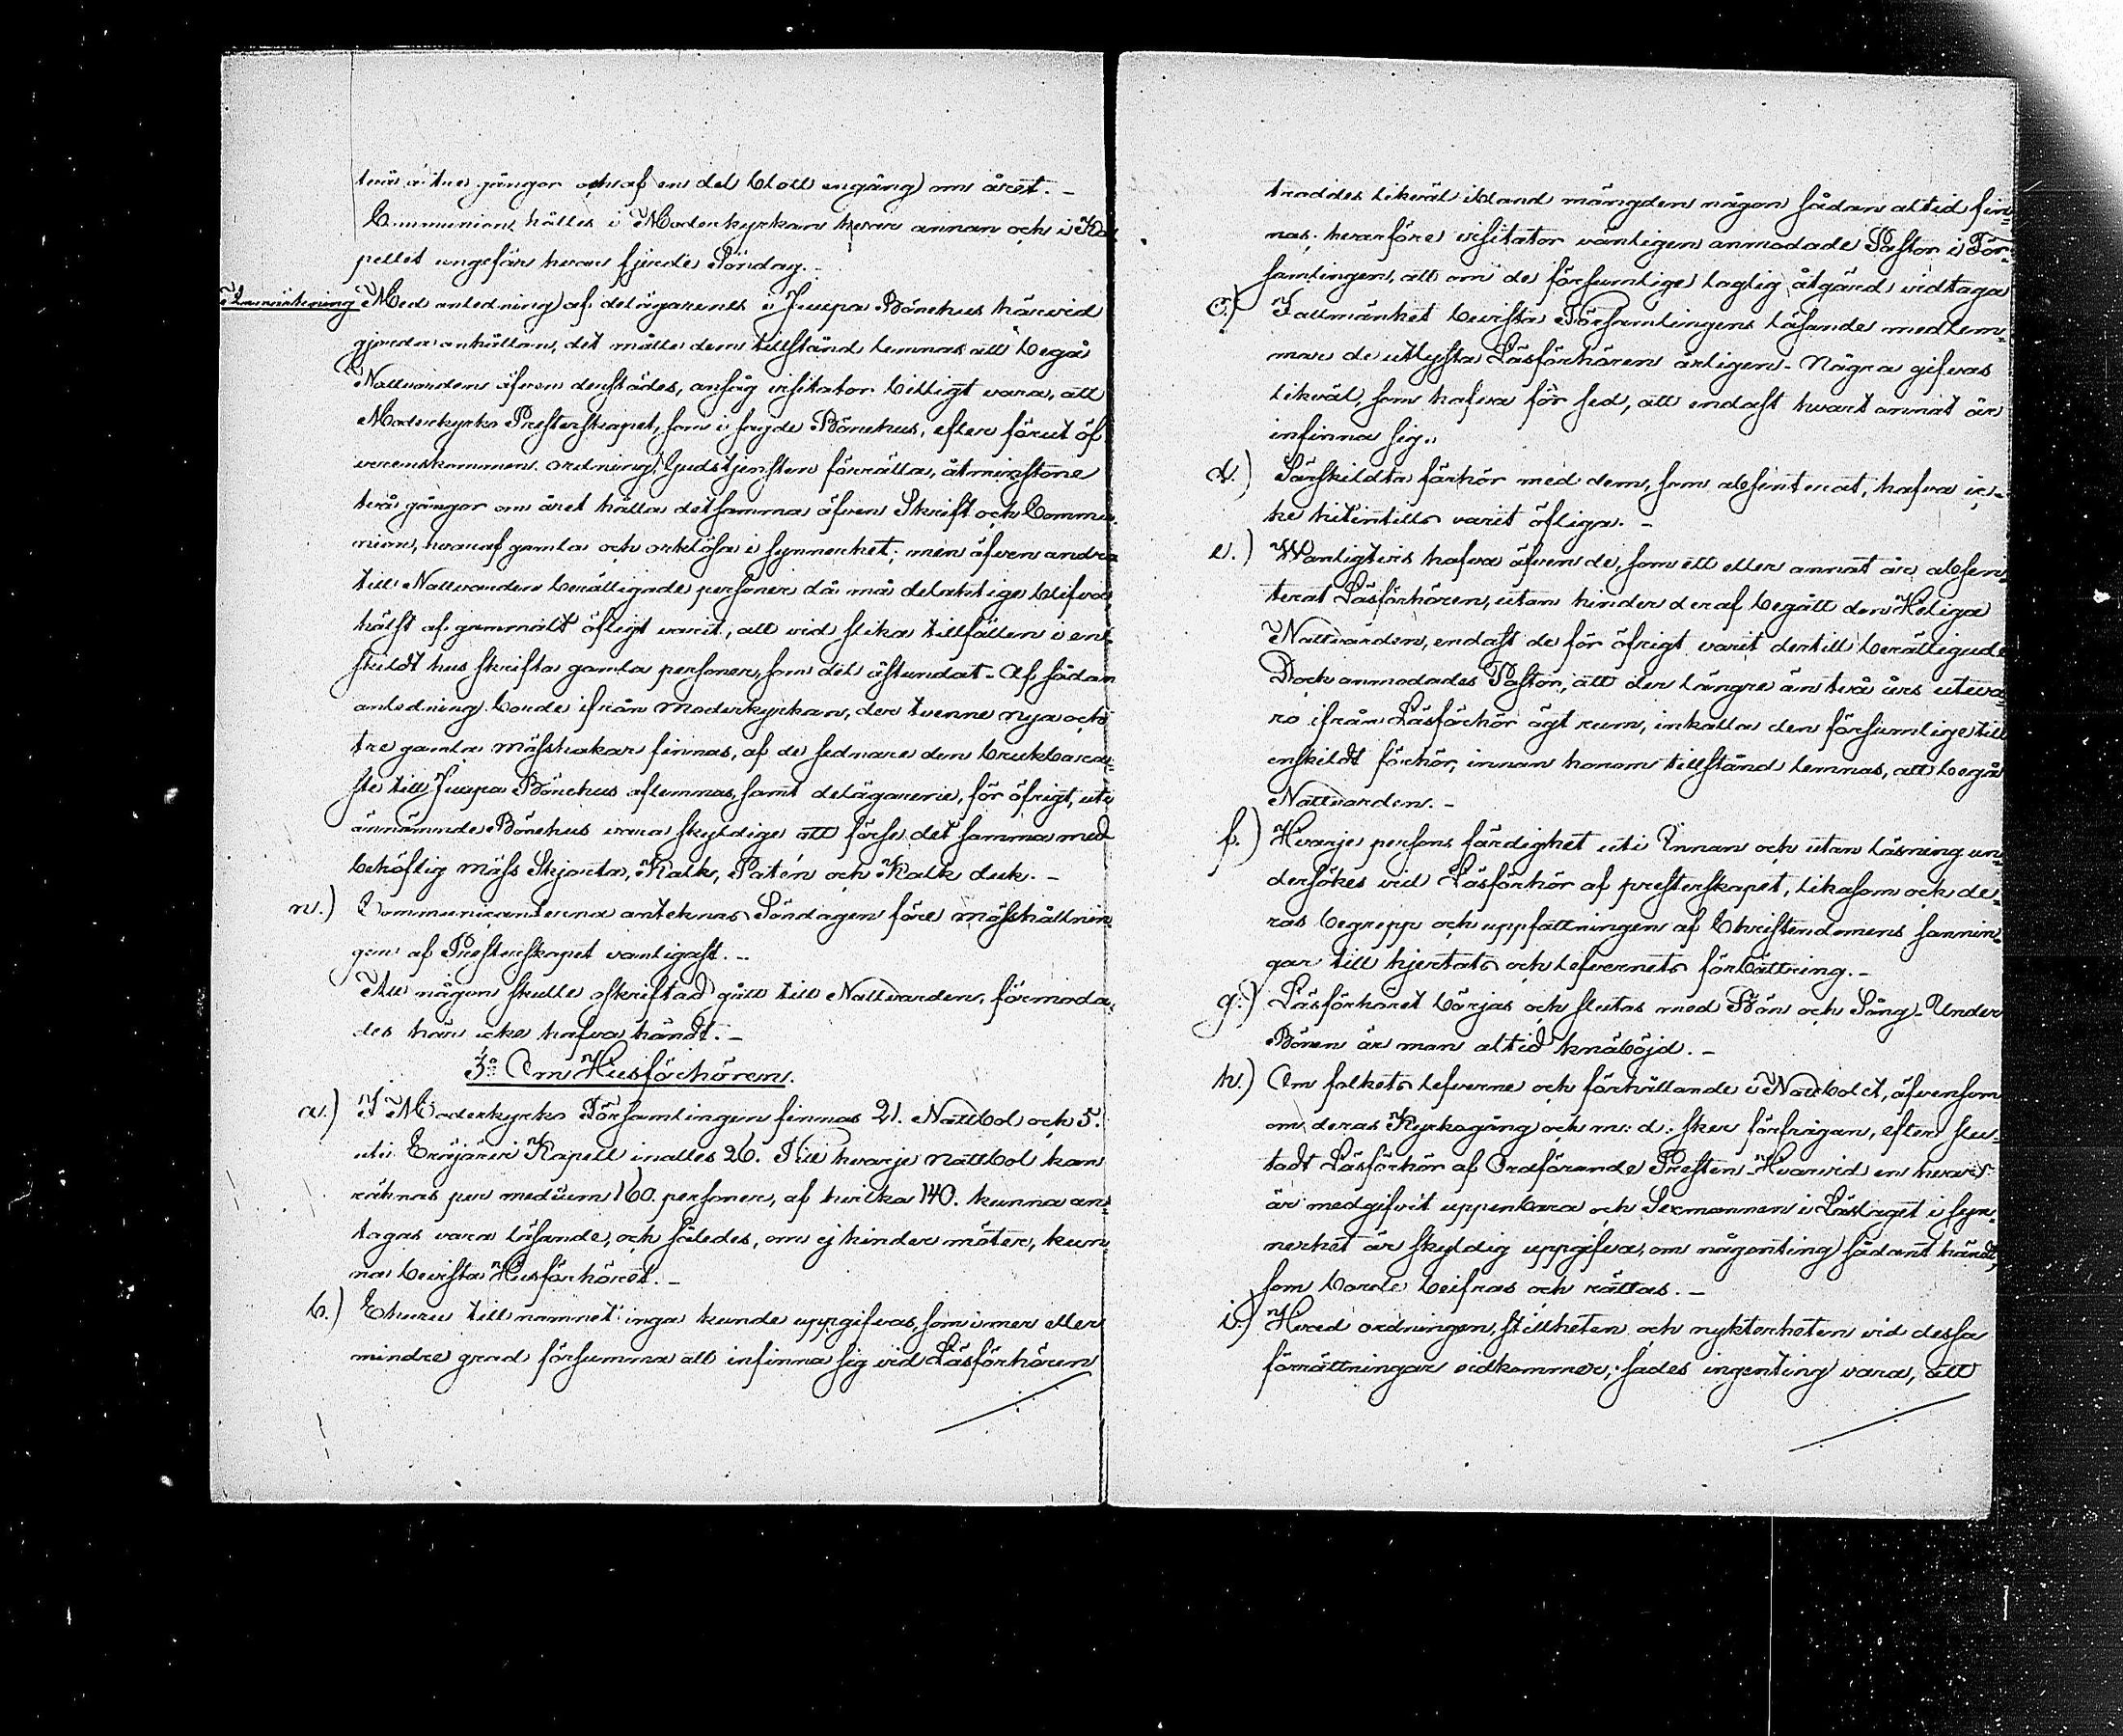 två à tre gångor och af en del blott engång) om året. –
Communion hålles i Moderkyrkan hvar annan och i Ka
pellet ungefär hvar fjerde Söndag. –
Anmärkning Med anledning af delägarenes i Juupa Bönehus härvid
gjorda anhållan, det måtte dem tillstånd lemnas att begå
Nattvarden äfven derstädes, ansåg visitator billigt vara, att
Moderkyrko Presterskapet, som i sagde Bönehus, efter förut öf
verenskommen ordning, Gudstjensten förrätta, åtminstone
två gångor om året hålla detsamma äfven Skrift och Commu
nion, hvaraf gamla och orkelösa i synnerhet; men äfven andra
till Nattvarden berättigade personer då må delaktige blifva,
hälst af gammalt öfligt varit, att vid slika tillfällen i en
skildt hus skrifta gamla personer, som det åstundat. Af sådan
anledning borde ifrån Moderkyrkan, der tvenne nya och
tre gamla mässhakar finnas, af de sednare den brukbara=
ste till Juupa Bönehus aflemnas, samt delägarene, för öfrigt, uti
ännämnde Bönehus vara skyldige att förse det samma med
behöflig mäss Skjorta, Kalk, Patén och Kalk duk. –
n.) Communicanterna anteknas Söndagen före mässhållnin
gen af Presterskapet vanligast. –
Att någon skulle oskriftad gått till Nattvarden, förmoda=
des här icke hafva händt. –
3:o Om Husförhören.
a.) I Moderkyrko Församlingen finnas 21. Nattbol och 5.
uti Eräjärvi Kapell inalles 26. Till hvarje Nattbol kan
räknas per medium 160. personer, af hvilka 140. kunna an=
tagas vara läsande, och således, om ej hinder möter, kun
na bevista Husförhöret. –
b.) Ehuru till namnet inga kunde uppgifvas, som i mer eller
mindre grad försumma att infinna sig vid Läsförhören
troddes likväl ibland mängden någon sådan altid fin=
nas; hvarföre visitator vänligen anmodade Pastor i För=
samlingen, att om de försumlige laglig åtgärd vidtaga
c.) I allmänhet bevista Församlingens läsande medlem=
mar de utlysta Läsförhören årligen. Några gifvas
likväl, som hafva för sed, att endast hvart annat år
infinna sig.
d.) Särskildta förhör med dem, som absenterat, hafva ic=
ke hitintills varit öfliga. –
e.) Wanligtvis hafva äfven de, som ett eller annat år absen=
terat Läsförhören, utan hinder deraf begått den Heliga
Nattvarden, endast de för öfrigt varit dertill berättigade
Dock anmodades Pastor, att der längre än två års uteva=
ro ifrån Läsförhör ägt rum, inkalla den försumlige till
enskildt förhör, innan honom tillstånd lemnas, att begå
Nattvarden. –
f.) Hvarje persons färdighet uti Innan och utan läsning un=
dersökes vid Läsförhör af presterskapet, likasom ock de=
ras begrepp och uppfattningen af Christendomens sannin=
gar till hjertats och lefvernets förbättring. –
g.) Läsförhöret börjas och slutas med Bön och Sång. Under
Bönen är man altid knäböjd. –
h.) Om folkets lefverne och förhållande i Nattbolet, äfvensom
om deras Kyrkogång och m: d: sker förfrågan, efter slu=
tadt Läsförhör af Ordförande Presten. Hvarvid en hvar
är medgifvit uppenbara och Sexmannen i Läslaget i syn=
nerhet är skyldig uppgifva, om någonting sådant händt,
som borde beifras och rättas. –
i.) Hvad ordningen, stillheten och nykterheten vid dessa
förrättningar vidkommer; sades ingenting vara, att